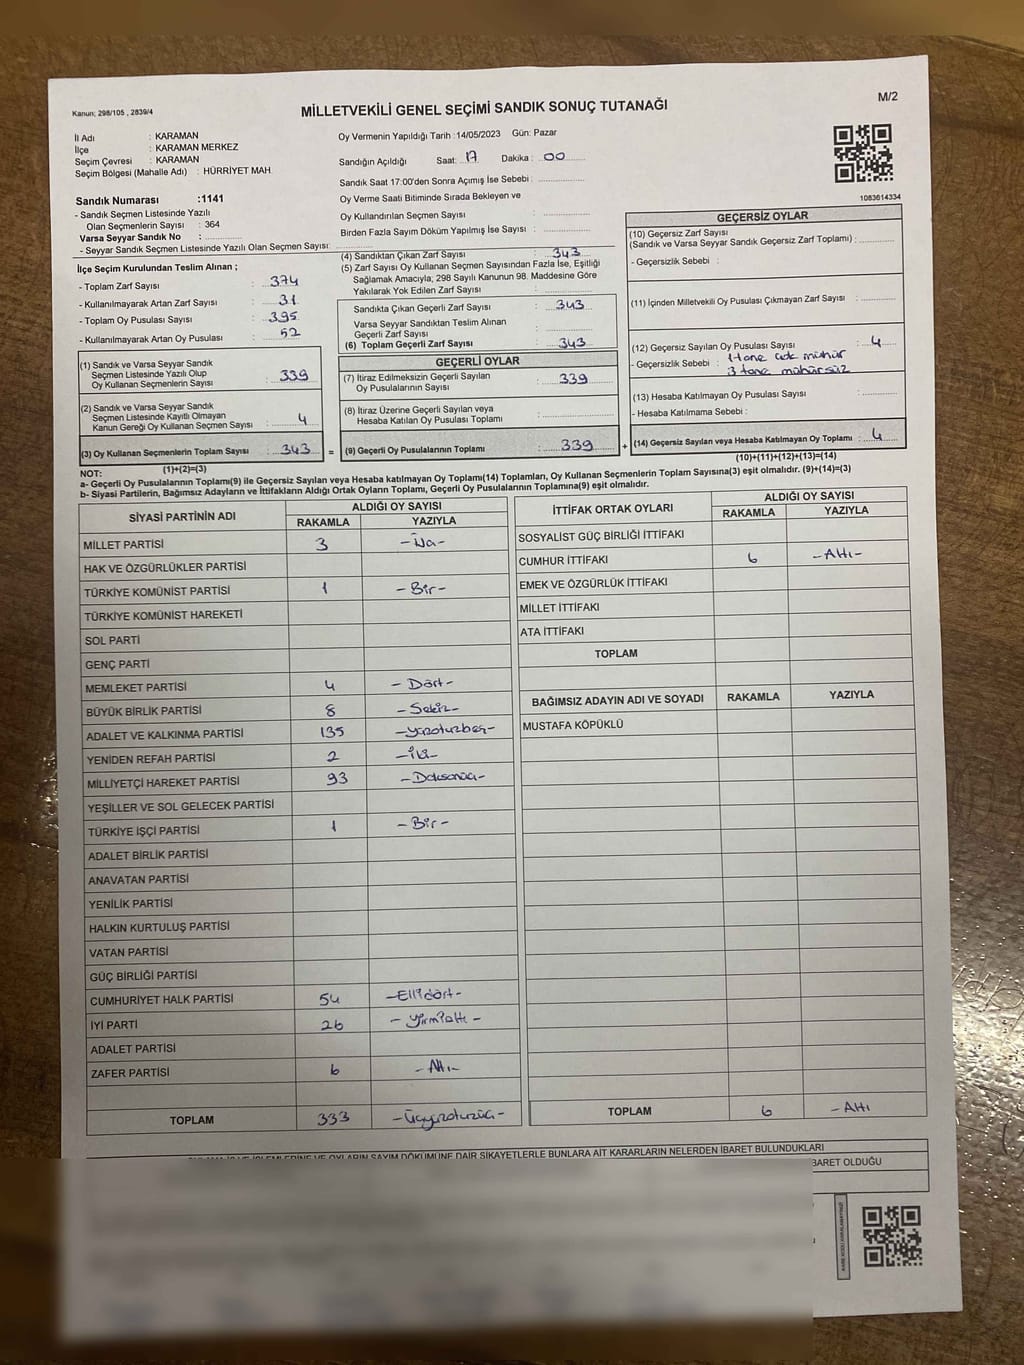 Kanun; 298/105 , 2839/4
MİLLETVEKİLİ GENEL SEÇİMİ SANDIK SONUÇ TUTANAĞI
M/2
İl Adı : KARAMAN
İlçe : KARAMAN MERKEZ
Seçim Çevresi : KARAMAN
Seçim Bölgesi (Mahalle Adı) : HÜRRİYET MAH.
Oy Vermenin Yapıldığı Tarih :14/05/2023 Gün: Pazar
Sandığın Açıldığı Saat: 17 Dakika : 00
Sandık Saat 17:00'den Sonra Açımış İse Sebebi :
Oy Verme Saati Bitiminde Sırada Bekleyen ve
Oy Kullandırılan Seçmen Sayısı :
Birden Fazla Sayım Döküm Yapılmış İse Sayısı :
1083614334
Sandık Numarası :1141
- Sandık Seçmen Listesinde Yazılı
Olan Seçmenlerin Sayısı : 364
Varsa Seyyar Sandık No :
- Seyyar Sandık Seçmen Listesinde Yazılı Olan Seçmen Sayısı:
İlçe Seçim Kurulundan Teslim Alınan ;
- Toplam Zarf Sayısı : 374
- Kullanılmayarak Artan Zarf Sayısı : 31
- Toplam Oy Pusulası Sayısı : 395
- Kullanılmayarak Artan Oy Pusulası : 52
(1) Sandık ve Varsa Seyyar Sandık
Seçmen Listesinde Yazılı Olup
Oy Kullanan Seçmenlerin Sayısı : 339
(2) Sandık ve Varsa Seyyar Sandık
Seçmen Listesinde Kayıtlı Olmayan
Kanun Gereği Oy Kullanan Seçmen Sayısı : 4
(3) Oy Kullanan Seçmenlerin Toplam Sayısı : 343 =
(1)+(2)=(3)
(4) Sandıktan Çıkan Zarf Sayısı : 343
(5) Zarf Sayısı Oy Kullanan Seçmen Sayısından Fazla İse, Eşitliği
Sağlamak Amacıyla; 298 Sayılı Kanunun 98. Maddesine Göre
Yakılarak Yok Edilen Zarf Sayısı :
Sandıkta Çıkan Geçerli Zarf Sayısı : 343
Varsa Seyyar Sandıktan Teslim Alınan
Geçerli Zarf Sayısı :
(6) Toplam Geçerli Zarf Sayısı : 343
GEÇERLİ OYLAR
(7) İtiraz Edilmeksizin Geçerli Sayılan
Oy Pusulalarının Sayısı : 339
(8) İtiraz Üzerine Geçerli Sayılan veya
Hesaba Katılan Oy Pusulası Toplamı :
(9) Geçerli Oy Pusulalarının Toplamı : 339 +
GEÇERSİZ OYLAR
(10) Geçersiz Zarf Sayısı
(Sandık ve Varsa Seyyar Sandık Geçersiz Zarf Toplamı) :
- Geçersizlik Sebebi :
(11) İçinden Milletvekili Oy Pusulası Çıkmayan Zarf Sayısı :
(12) Geçersiz Sayılan Oy Pusulası Sayısı : 4
- Geçersizlik Sebebi : 1 tane çok mühür
3 tane mühürsüz
(13) Hesaba Katılmayan Oy Pusulası Sayısı :
- Hesaba Katılmama Sebebi :
(14) Geçersiz Sayılan veya Hesaba Katılmayan Oy Toplamı : 4
(10)+(11)+(12)+(13)=(14)
NOT:
a- Geçerli Oy Pusulalarının Toplamı(9) ile Geçersiz Sayılan veya Hesaba katılmayan Oy Toplamı(14) Toplamları, Oy Kullanan Seçmenlerin Toplam Sayısına(3) eşit olmalıdır. (9)+(14)=(3)
b- Siyasi Partilerin, Bağımsız Adayların ve İttifakların Aldığı Ortak Oyların Toplamı, Geçerli Oy Pusulalarının Toplamına(9) eşit olmalıdır.
SİYASİ PARTİNİN ADI ALDIĞI OY SAYISI
RAKAMLA YAZIYLA
MİLLET PARTİSİ 3 -Üç-
HAK VE ÖZGÜRLÜKLER PARTİSİ
TÜRKİYE KOMÜNİST PARTİSİ 1 -Bir-
TÜRKİYE KOMÜNİST HAREKETİ
SOL PARTİ
GENÇ PARTİ
MEMLEKET PARTİSİ 4 -Dört-
BÜYÜK BİRLİK PARTİSİ 8 -Sekiz-
ADALET VE KALKINMA PARTİSİ 135 -yüzotuzbeş-
YENİDEN REFAH PARTİSİ 2 -İki-
MİLLİYETÇİ HAREKET PARTİSİ 93 -Doksanüç-
YEŞİLLER VE SOL GELECEK PARTİSİ
TÜRKİYE İŞÇİ PARTİSİ 1 -Bir-
ADALET BİRLİK PARTİSİ
ANAVATAN PARTİSİ
YENİLİK PARTİSİ
HALKIN KURTULUŞ PARTİSİ
VATAN PARTİSİ
GÜÇ BİRLİĞİ PARTİSİ
CUMHURİYET HALK PARTİSİ 54 -Ellidört-
İYİ PARTİ 26 -Yirmialtı-
ADALET PARTİSİ
ZAFER PARTİSİ 6 -Altı-
TOPLAM 333 -Üçyüzotuzüç-
İTTİFAK ORTAK OYLARI ALDIĞI OY SAYISI
RAKAMLA YAZIYLA
SOSYALİST GÜÇ BİRLİĞİ İTTİFAKI
CUMHUR İTTİFAKI 6 -Altı-
EMEK VE ÖZGÜRLÜK İTTİFAKI
MİLLET İTTİFAKI
ATA İTTİFAKI
TOPLAM
BAĞIMSIZ ADAYIN ADI VE SOYADI RAKAMLA YAZIYLA
MUSTAFA KÖPÜKLÜ
TOPLAM 6 -Altı
OYLARIN SAYIM DÖKÜMÜNE DAİR ŞİKAYETLERLE BUNLARA AİT KARARLARIN NELERDEN İBARET BULUNDUKLARI
BARET OLDUĞU